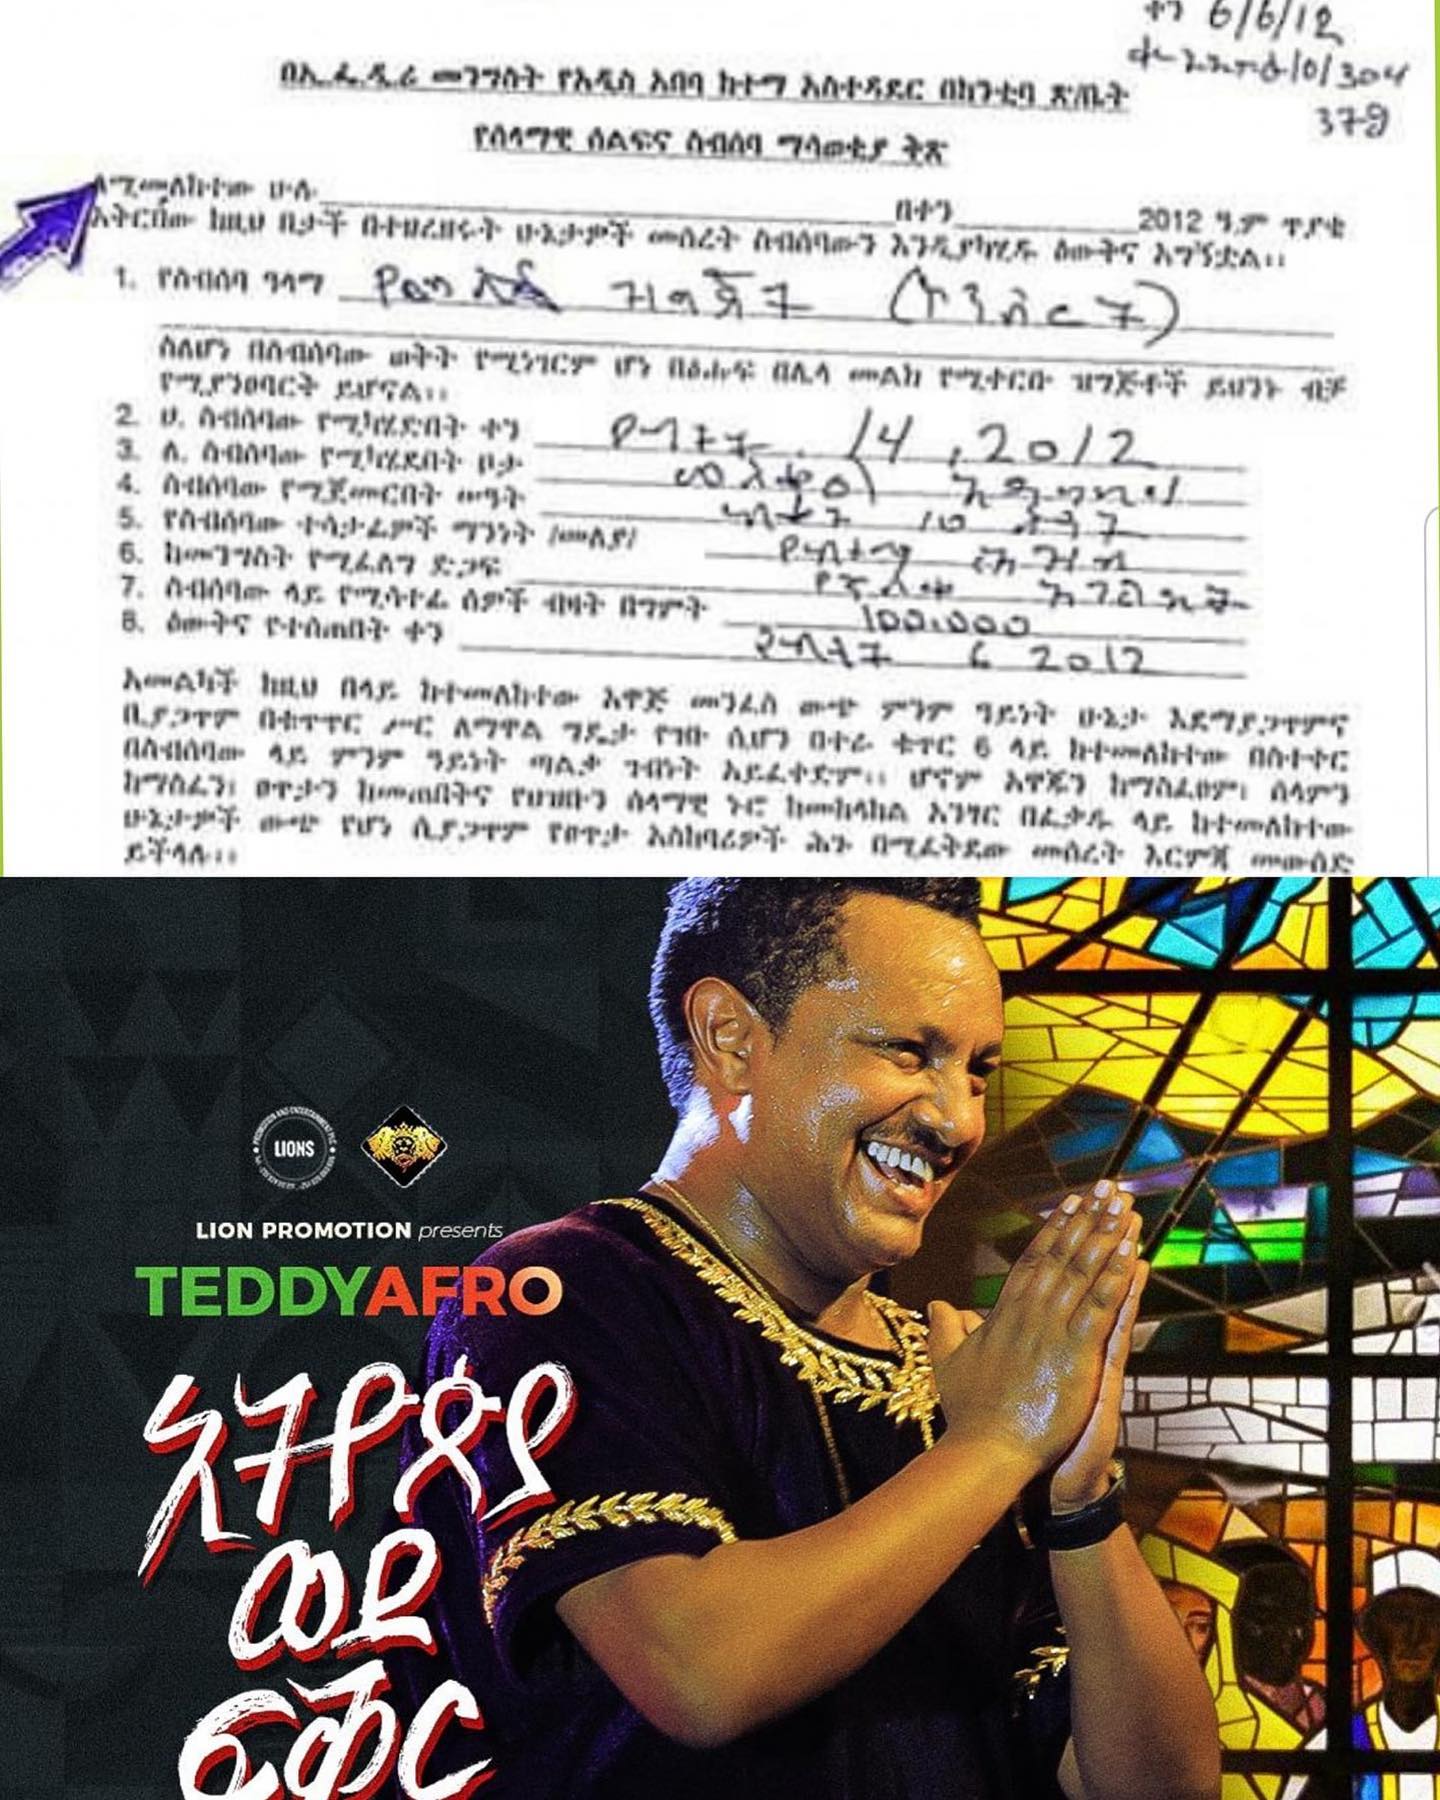 ቀን 6/6/12
304
379
በኢ.ፌ.ዲ.ሪ መንግስት የአዲስ አበባ ከተማ አስተዳደር በከንቲባ ጽ/ቤት
የሰላማዊ ሰልፍና ስብሰባ ማሳወቂያ ቅጽ
ለሚመለከተው ሁሉ
በቀን 2012 ዓ.ም ጥያቄ
አቅርበው ከዚህ በታች በተዘረዘሩት ሁኔታዎች መሰረት ስብሰባውን እንዲያካሂዱ ዕውቅና አግኝቷል፡፡
1. የስብሰባ ዓላማ የሙዚቃ ዝግጅት (ኮንሰርት)
ስለሆነ በስብሰባው ወቅት የሚነገርም ሆነ በፅሑፍ በሌላ መልክ የሚቀርቡ ዝግጅቶች ይህንኑ ብቻ
የሚያንፀባርቅ ይሆናል፡፡
2. ሀ. ስብሰባው የሚካሄድበት ቀን የካቲት 14, 2012
3. ለ. ስብሰባው የሚካሄደበት ቦታ መስቀል አደባባይ
4. ስብሰባው የሚጀመርበት ሠዓት ከቀኑ 10 ሰዓት
5. የስብሰባው ተሳታፊዎች ማንነት /መለያ/ የከተማው ሕዝብ
6. ከመንግስት የሚፈለግ ድጋፍ የጥበቃ አገልግሎት
7. ስብሰባው ላይ የሚሳተፈ ሰዎች ብዛት በግምት 100.000
8. ዕውቅና የተሰጠበት ቀን የካቲት 6 2012
አመልካች ከዚህ በላይ ከተመለከተው አዋጅ መንፈስ ውጭ ምንም ዓይነት ሁኔታ እደማያጋጥምና
ቢያጋጥም በቁጥጥር ሥር ለማዋል ግዴታ የገቡ ሲሆን በተራ ቁጥር 6 ላይ ከተመለከተው በስተቀር
በስብሰባው ላይ ምንም ዓይነት ጣልቃ ገብነት አይፈቀድም፡፡ ሆኖም አዋጁን ከማስፈፀም፣ ሰላምን
ከማስፈን፣ ፀጥታን ከመጠበቅና የህዝቡን ሰላማዊ ኑሮ ከመከላከል አንፃር በፈቃዱ ላይ ከተመለከተው
ሁኔታዎች ውጭ የሆነ ሲያጋጥም የፀጥታ አስከባሪዎች ሕጉ በሚፈቅደው መሰረት እርምጃ መውሰድ
ይችላሉ፡፡
LIONS
LION PROMOTION presents
TEDDYAFRO
ኢትዮጵያ
ወደ
ፍቅር